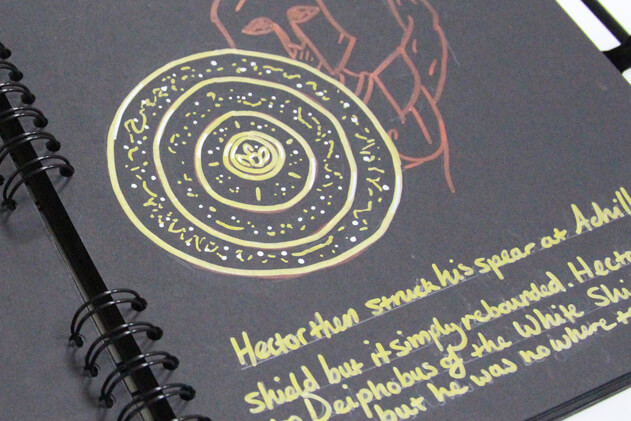 Hector then struck his spear at Achill
shield but it simply rebounded. Hecto
Deiphobus of the White Shi
but he was nowhere t